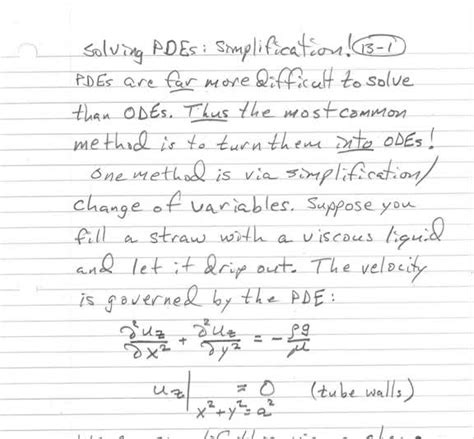 Solving PDEs: Simplification! 13-1
PDEs are far more difficult to solve
than ODEs. Thus the most common
method is to turn them into ODEs!
One method is via simplification/
change of variables. Suppose you
fill a straw with a viscous liquid
and let it drip out. The velocity
is governed by the PDE:
∂²u_z/∂x² + ∂²u_z/∂y² = -ρg/μ
u_z|_{x²+y²=a²} = 0 (tube walls)